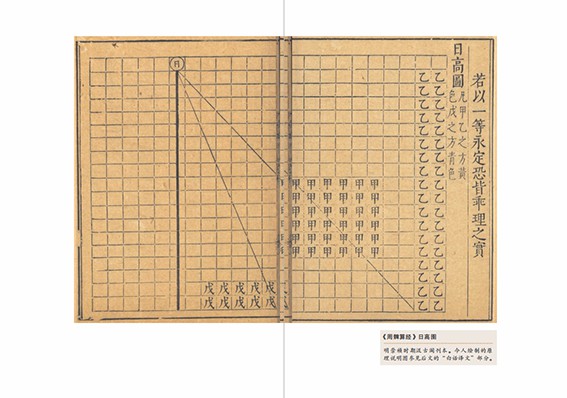 若以一等永定恐皆乖理之實
日高圖
凡甲乙之方黃
色戊之方青色
乙乙乙乙乙乙乙乙乙乙乙乙乙乙乙乙乙乙
乙乙乙乙乙乙乙乙乙乙乙乙乙乙乙乙乙乙
甲甲甲甲甲甲
甲甲甲甲甲甲
甲甲甲甲甲甲
甲甲甲甲甲甲
甲甲甲甲甲甲
甲甲甲甲甲甲
日
戊戊
戊戊
戊戊
戊戊
戊戊
《周髀算经》日高图
明崇祯时期汲古阁刊本。今人绘制的原
理说明图参见后文的“白话译文”部分。